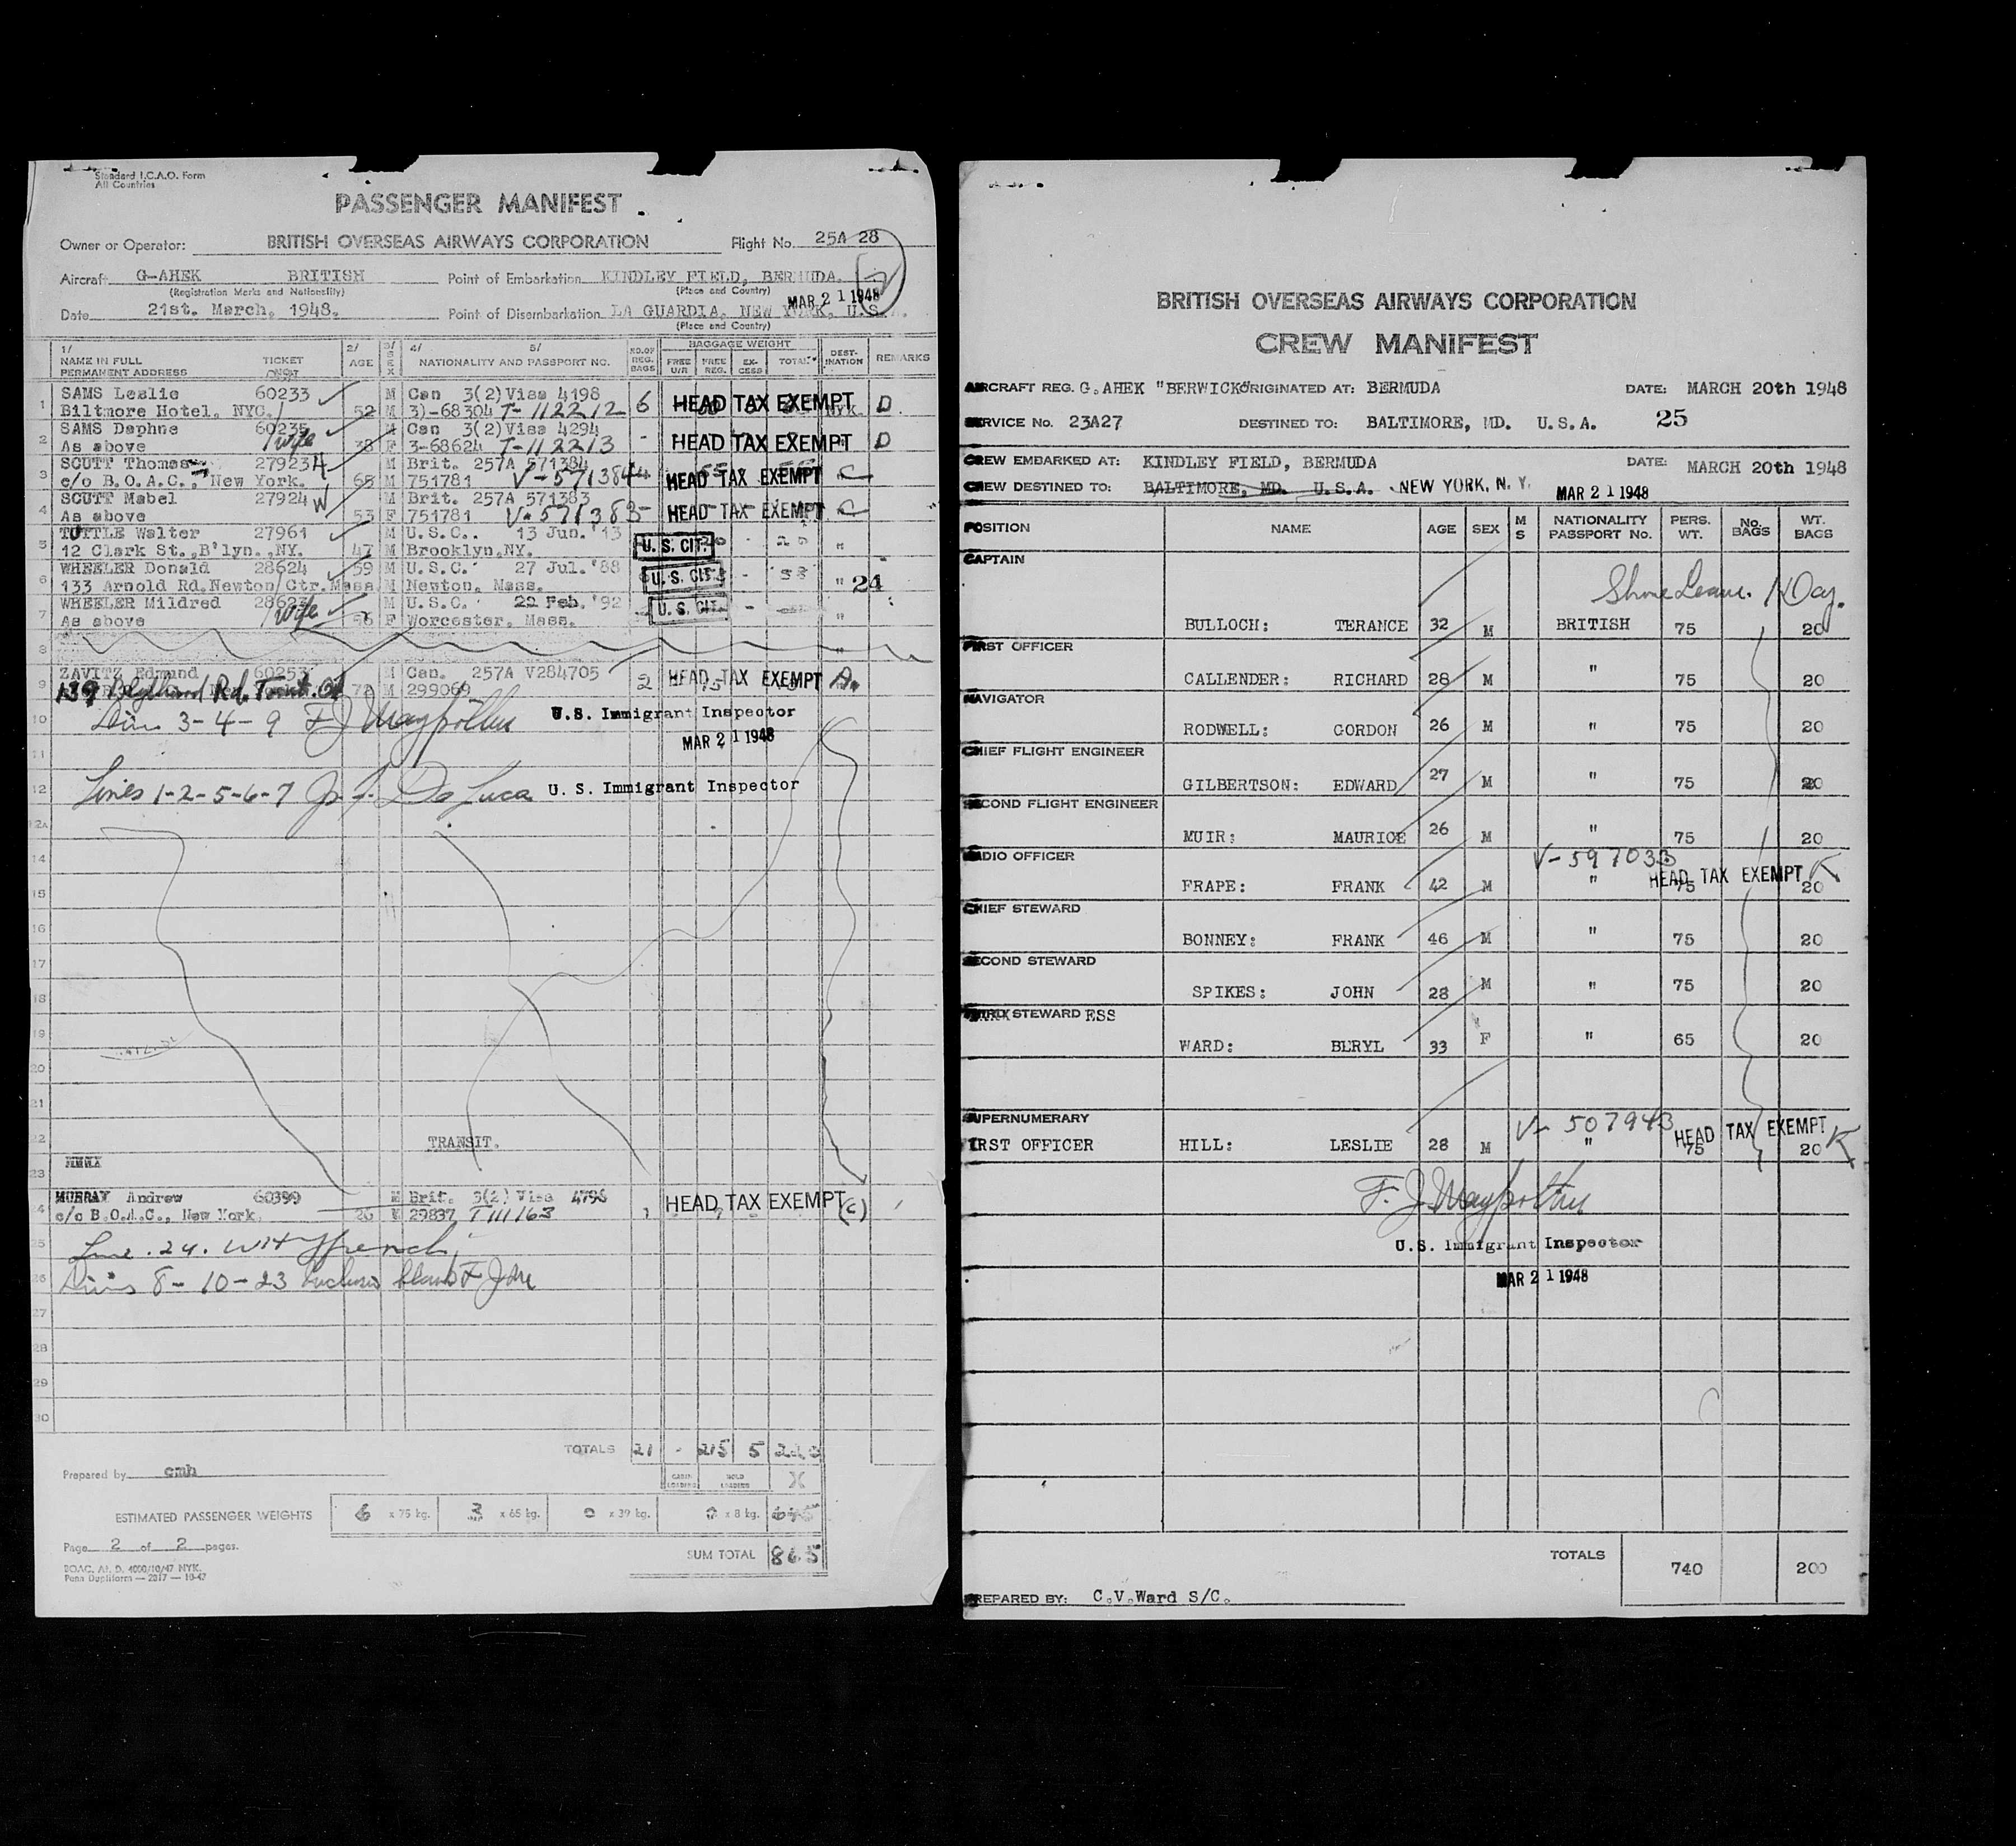 Standard I.C.A.O. Form
All Countries
PASSENGER MANIFEST
Owner or Operator: BRITISH OVERSEAS AIRWAYS CORPORATION Flight No. 25A 28
Aircraft G-AHEK BRITISH Point of Embarkation KINDLEY FIELD, BERMUDA.
(Registration Marks and Nationality) (Place and Country)
MAR 21 1948
Date 21st. March, 1948. Point of Disembarkation LA GUARDIA, NEW YORK, U.S.A.
(Place and Country)
1/ NAME IN FULL PERMANENT ADDRESS TICKET 2/ AGE 3/ SEX 4/ 5/ NATIONALITY AND PASSPORT NO. NO. OF REG. BAGS BAGGAGE WEIGHT FREE U/R FREE REG. EX-CESS TOTAL DEST-INATION REMARKS
1 SAMS Leslie 60233 M Can 3(2)Visa 4198
Biltmore Hotel, NYC. 52 M 3)-68304 T-112212 6 HEAD TAX EXEMPT NYK D
2 SAMS Daphne 60235 M Can 3(2)Visa 4294
As above wife 38 F 3-68624 T-112213 - HEAD TAX EXEMPT D
3 SCUTT Thomas 27923 H M Brit. 257A 571384
c/o B.O.A.C., New York. 65 M 751781 V-571384 4 HEAD TAX EXEMPT C
4 SCUTT Mabel 27924 W M Brit. 257A 571383
As above 53 F 751781 V-571383 - HEAD TAX EXEMPT C
5 TUTTLE Walter 27961 M U.S.C. 13 Jun. '13
12 Clark St., B'lyn., NY. 47 M Brooklyn, NY. U. S. CIT. - "
6 WHEELER Donald 28624 59 M U.S.C. 27 Jul. '88
133 Arnold Rd. Newton Ctr. Mass M Newton, Mass. U. S. CIT. - " 24
7 WHEELER Mildred M U.S.C. 22 Feb. '92
As above wife 56 F Worcester, Mass. U. S. CIT. "
8 "
9 ZAVITZ Edmund 60253 M Can. 257A V284705
139 Rd. M 299069 2 HEAD TAX EXEMPT A.
10 3-4-9 U.S. Immigrant Inspector
11 MAR 21 1948
12 Lines 1-2-5-6-7 De Luca U. S. Immigrant Inspector
12A
14
15
16
17
18
19
20
21
22 TRANSIT.
23
4 MURRAY Andrew 60399 M Brit. 3(2) Visa 4796
c/o B.O.A.C., New York. 26 M 29837 T111163 1 HEAD TAX EXEMPT (C)
25 Line 24.
26 8-10-23 blank
27
28
29
30
TOTALS 21 - 215 5
CABIN LOADING HOLD LOADING X
Prepared by cmh
ESTIMATED PASSENGER WEIGHTS 6 x 75 kg. 3 x 65 kg. 0 x 39 kg. 0 x 8 kg.
Page 2 of 2 pages. SUM TOTAL 865
BOAC. Al. D. 4000/10/47 NYK.
Penn Dupliform — 2817 — 10-47
BRITISH OVERSEAS AIRWAYS CORPORATION
CREW MANIFEST
AIRCRAFT REG. G.AHEK "BERWICK" ORIGINATED AT: BERMUDA DATE: MARCH 20th 1948
SERVICE No. 23A27 DESTINED TO: BALTIMORE, MD. U.S.A. 25
CREW EMBARKED AT: KINDLEY FIELD, BERMUDA DATE: MARCH 20th 1948
CREW DESTINED TO: BALTIMORE, MD. U.S.A. NEW YORK, N. Y. MAR 21 1948
POSITION NAME AGE SEX M S NATIONALITY PASSPORT No. PERS. WT. No. BAGS WT. BAGS
CAPTAIN
Shore Leave. 1 Day.
BULLOCH: TERANCE 32 M BRITISH 75 20
FIRST OFFICER
CALLENDER: RICHARD 28 M " 75 20
NAVIGATOR
RODWELL: GORDON 26 M " 75 20
CHIEF FLIGHT ENGINEER
GILBERTSON: EDWARD 27 M " 75 20
SECOND FLIGHT ENGINEER
MUIR: MAURICE 26 M " 75 20
RADIO OFFICER V-597033
FRAPE: FRANK 42 M " 75 HEAD TAX EXEMPT 20 K
CHIEF STEWARD
BONNEY: FRANK 46 M " 75 20
SECOND STEWARD
SPIKES: JOHN 28 M " 75 20
STEWARD ESS
WARD: BERYL 33 F " 65 20
SUPERNUMERARY V- 507943
FIRST OFFICER HILL: LESLIE 28 M " 75 HEAD TAX EXEMPT 20 K
U.S. Immigrant Inspector
MAR 21 1948
TOTALS 740 200
PREPARED BY: C.V.Ward S/C.